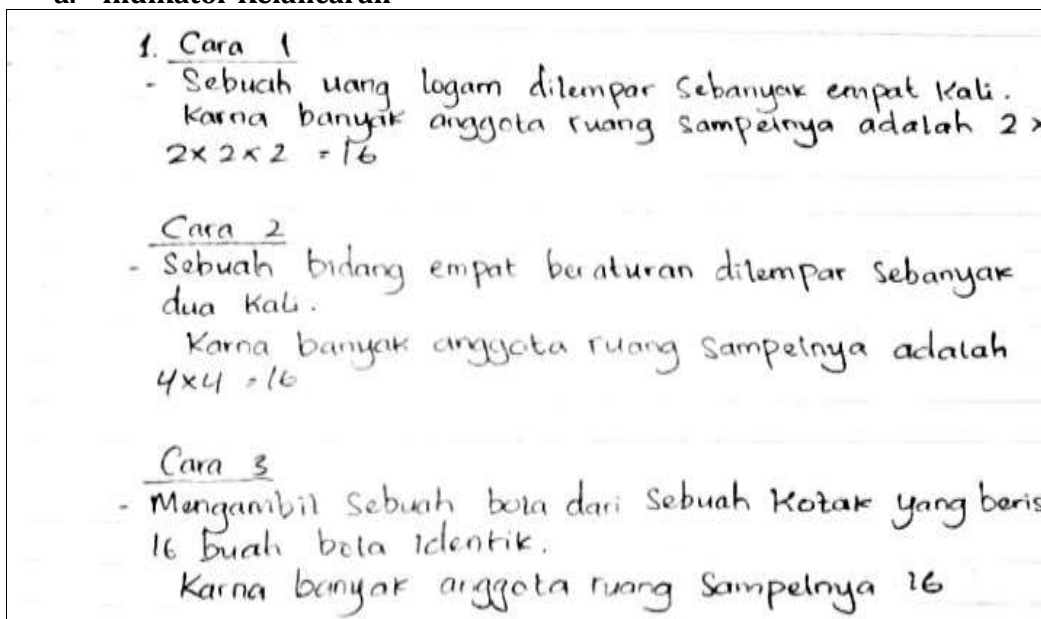 a. Indikator Kelancaran
1. Cara 1
- Sebuah uang logam dilempar Sebanyak empat Kali.
Karna banyak anggota ruang sampelnya adalah 2 ×
2 × 2 × 2 = 16
Cara 2
- Sebuah bidang empat beraturan dilempar Sebanyak
dua Kali.
Karna banyak anggota ruang Sampelnya adalah
4 × 4 = 16
Cara 3
- Mengambil Sebuah bola dari Sebuah Kotak yang beris
16 buah bola identik.
Karna banyak anggota ruang Sampelnya 16